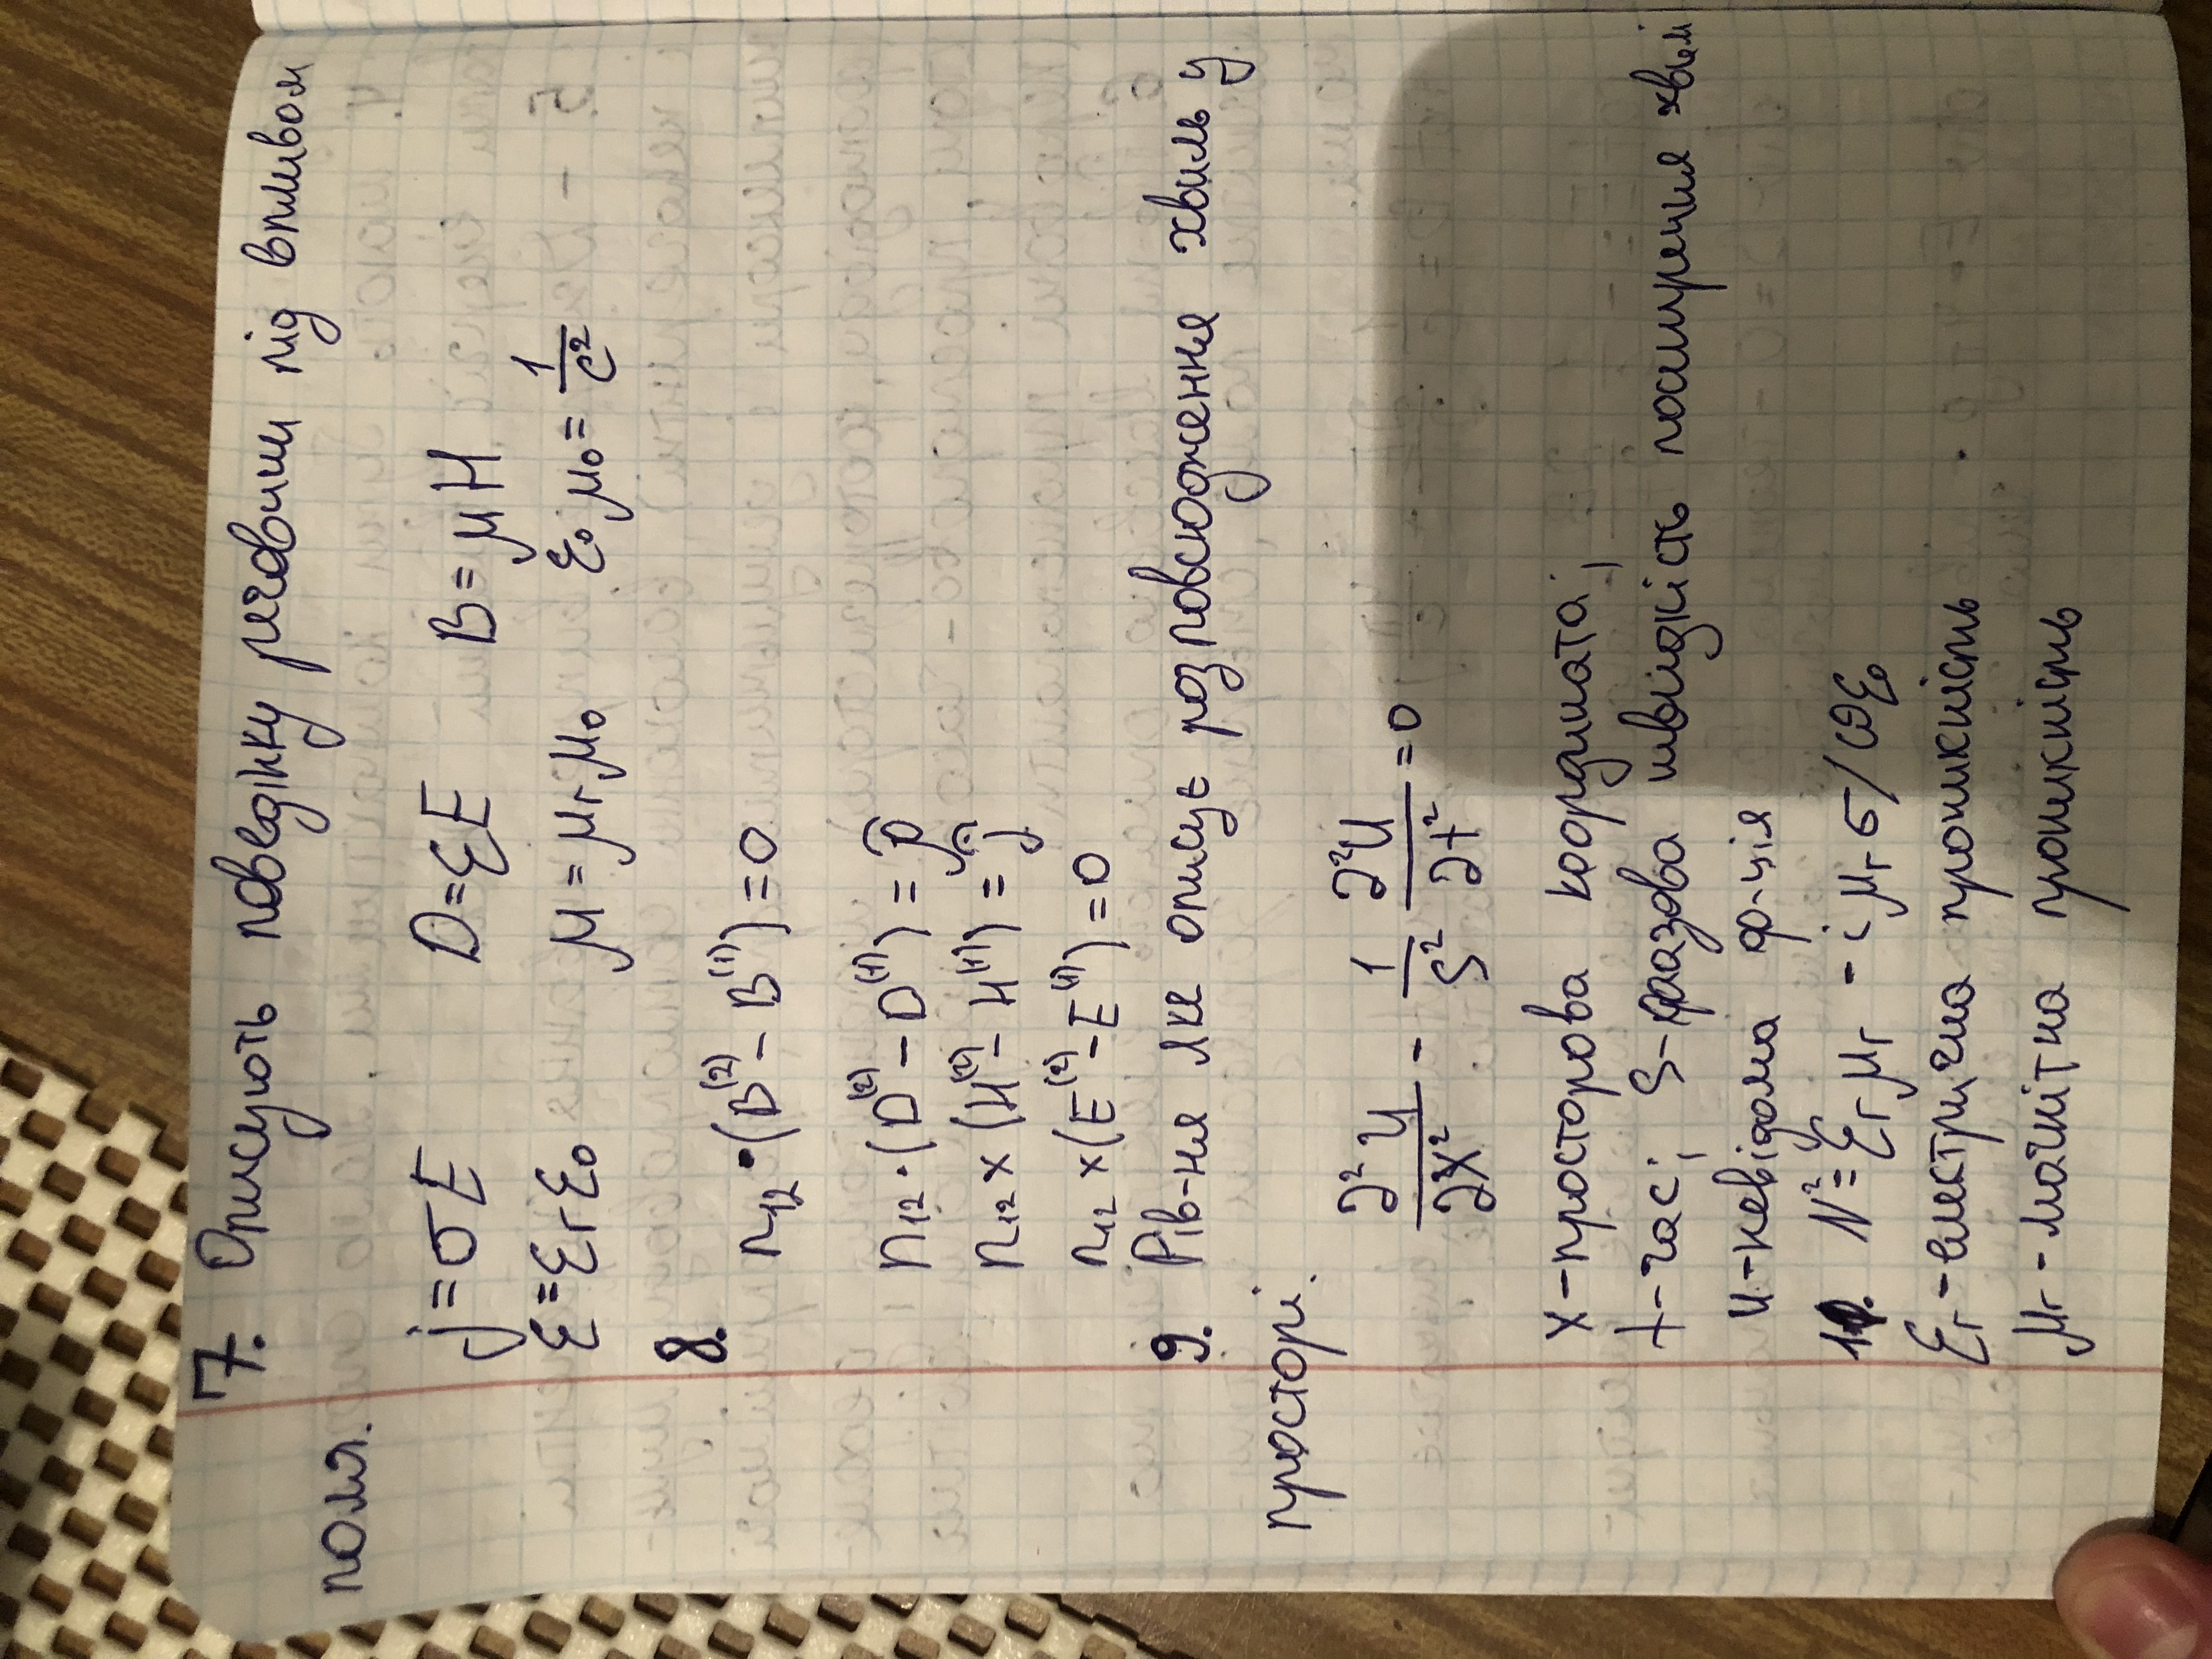 7. Описують поведінку речовини під впливом
поля.
j = σE D = εE B = μH
ε = εrε0 μ = μrμ0 ε0 μ0 = 1/c²
8.
n12 · (B⁽²⁾ − B⁽¹⁾) = 0
n12 · (D⁽²⁾ − D⁽¹⁾) = ρ̂
n12 × (H⁽²⁾ − H⁽¹⁾) = ĵ
n12 × (E⁽²⁾ − E⁽¹⁾) = 0
9. Рів-ня яке описує розповсюдження хвиль у
просторі.
∂²u/∂x² − 1/s² ∂²u/∂t² = 0
x – просторова координата;
t – час; s – фазова швидкість поширення хвилі
u – невідома ф-ція
10. N² = εrμr − iμrσ/ωε0
εr – електрична проникність
μr – магнітна проникність